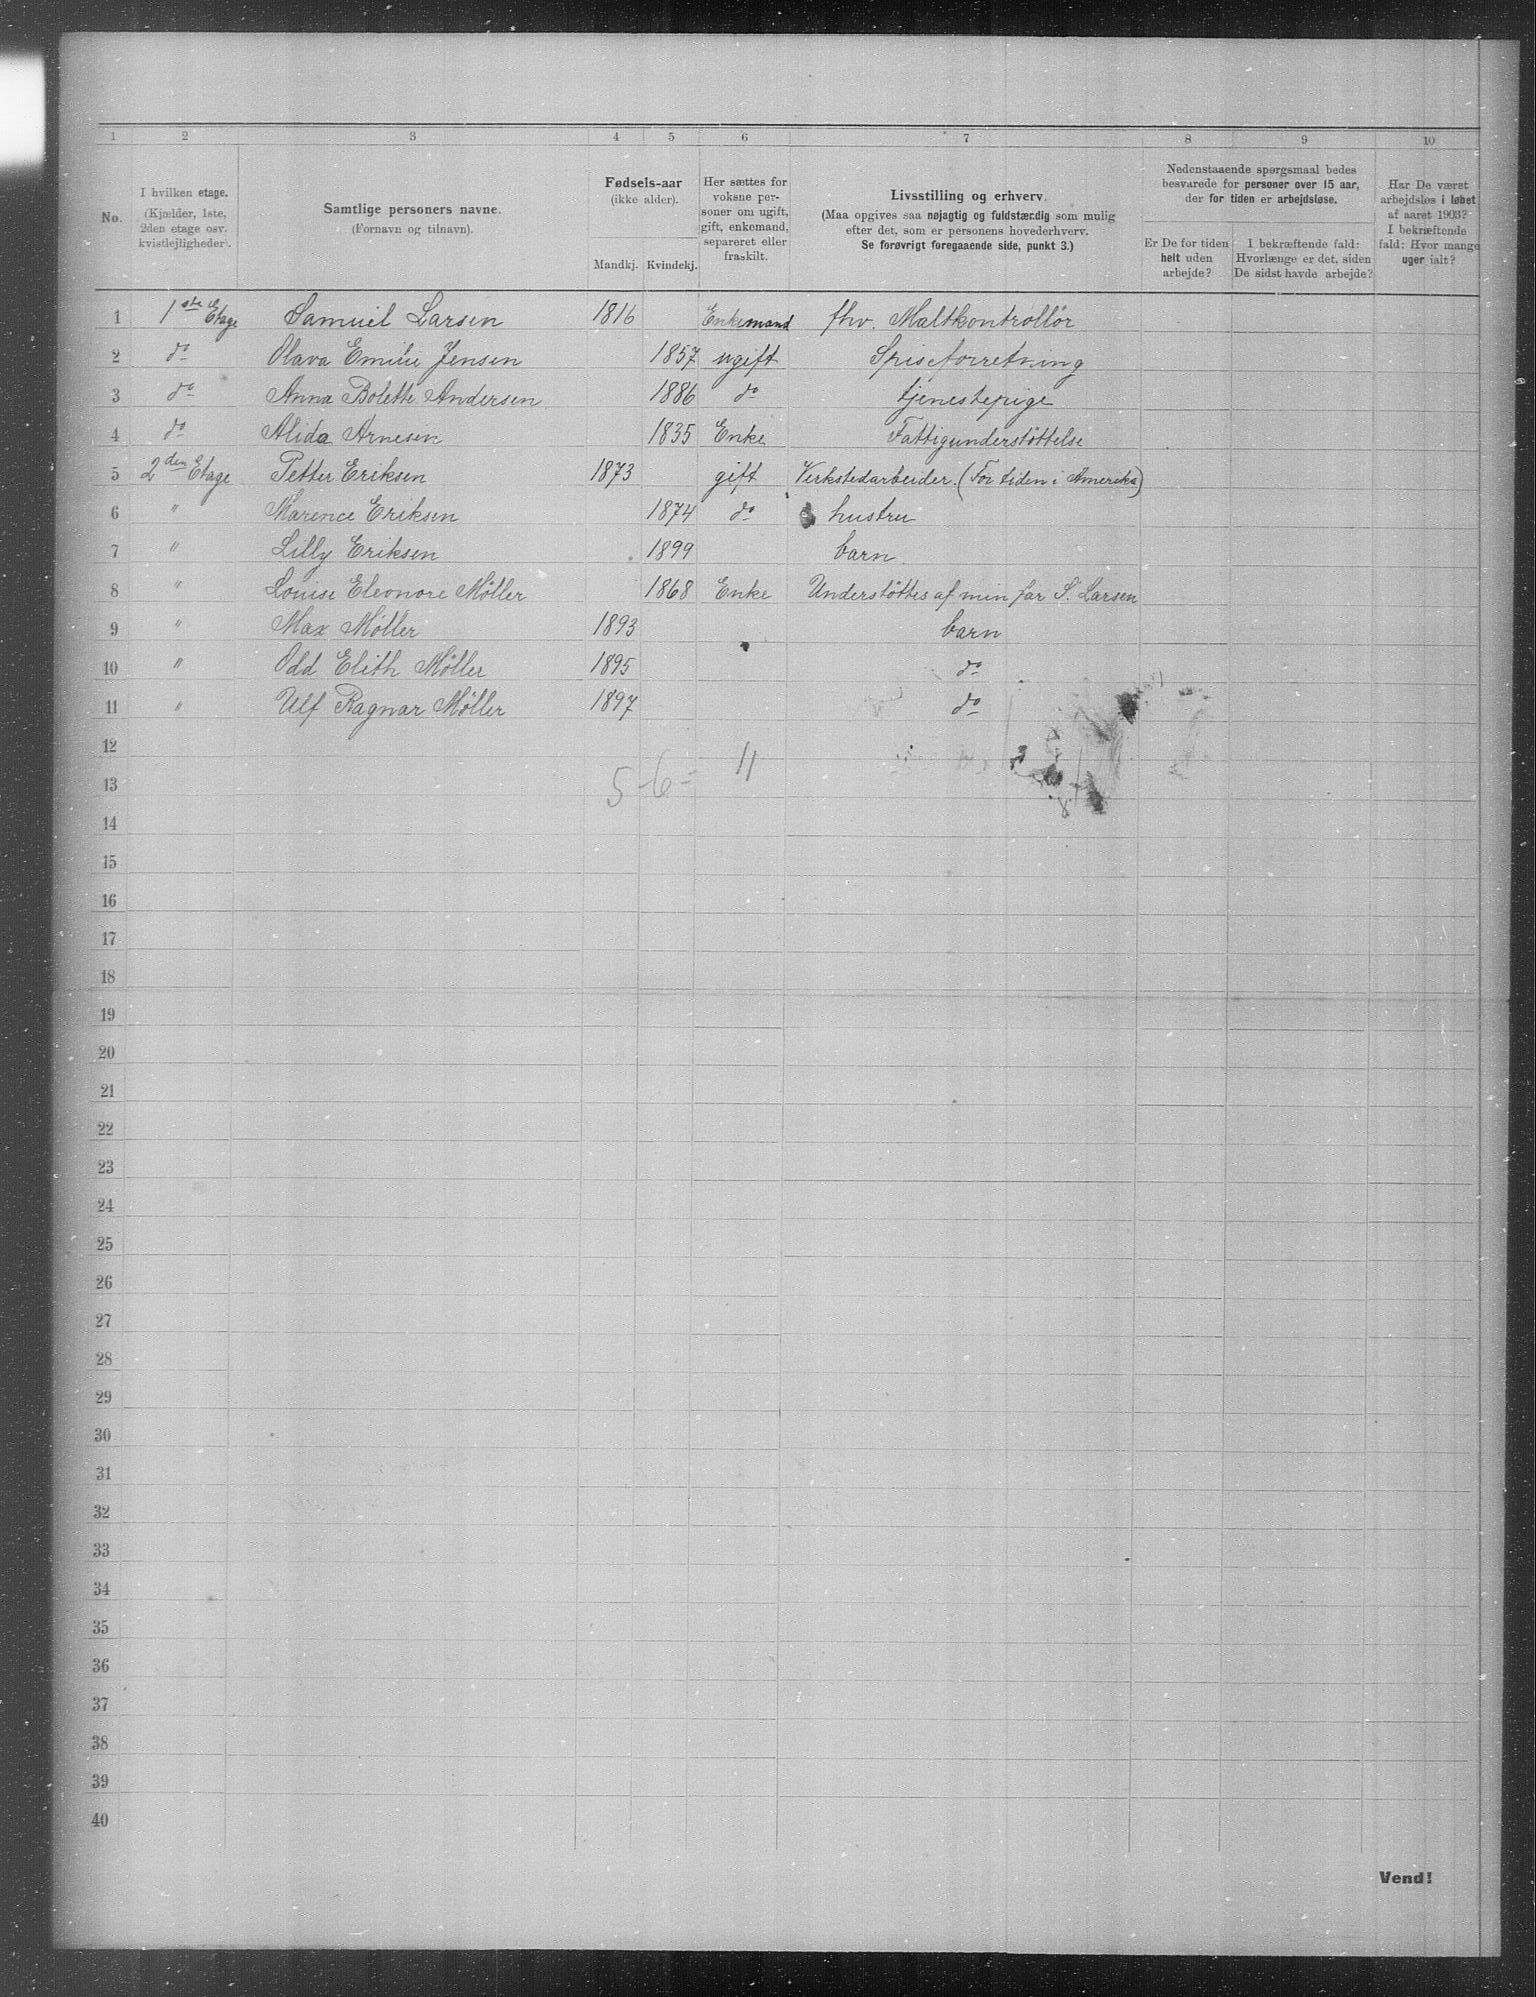 1 2 3 4 5 6 7 8 9 10
No.
I hvilken etage.
(Kjælder, 1ste,
2den etage osv.
kvistlejligheder).
Samtlige personers navne.
(Fornavn og tilnavn).
Fødsels-aar
(ikke alder).
Mandkj. Kvindekj.
Her sættes for
voksne per-
soner om ugift,
gift, enkemand,
separeret eller
fraskilt.
Livsstilling og erhverv.
(Maa opgives saa nøjagtig og fuldstændig som mulig
efter det, som er personens hovederhverv.
Se forøvrigt foregaaende side, punkt 3.)
Nedenstaaende spørgsmaal bedes
besvarede for personer over 15 aar,
der for tiden er arbejdsløse.
Er De for tiden
helt uden
arbejde?
I bekræftende fald:
Hvorlænge er det, siden
De sidst havde arbejde?
Har De været
arbejdsløs i løbet
af aaret 1903?
I bekræftende
fald: Hvor mange
uger ialt?
1 1ste Etage Samuel Larsen 1816 Enkemand fhv. Maltkontrollör
2 do Olava Emilie Jensen 1857 ugift Spiseforretning
3 do Anna Bolette Andersen 1886 do tjenestepige
4 do Alida Arnesen 1835 Enke Fattigunderstöttelse
5 2den Etage Petter Eriksen 1873 gift Verkstedarbeider. (For tiden i Amerika)
6 " Marence Eriksen 1874 do hustru
7 " Lilly Eriksen 1899 barn.
8 " Louise Eleonore Möller 1868 Enke Understöttes af min far S. Larsen
9 " Max Möller 1893 barn
10 " Odd Elith Möller 1895 do
11 " Ulf Ragnar Möller 1897 do
12
5-6= 11
13
14
15
16
17
18
19
20
21
22
23
24
25
26
27
28
29
30
31
32
33
34
35
36
37
38
39
40
Vend!